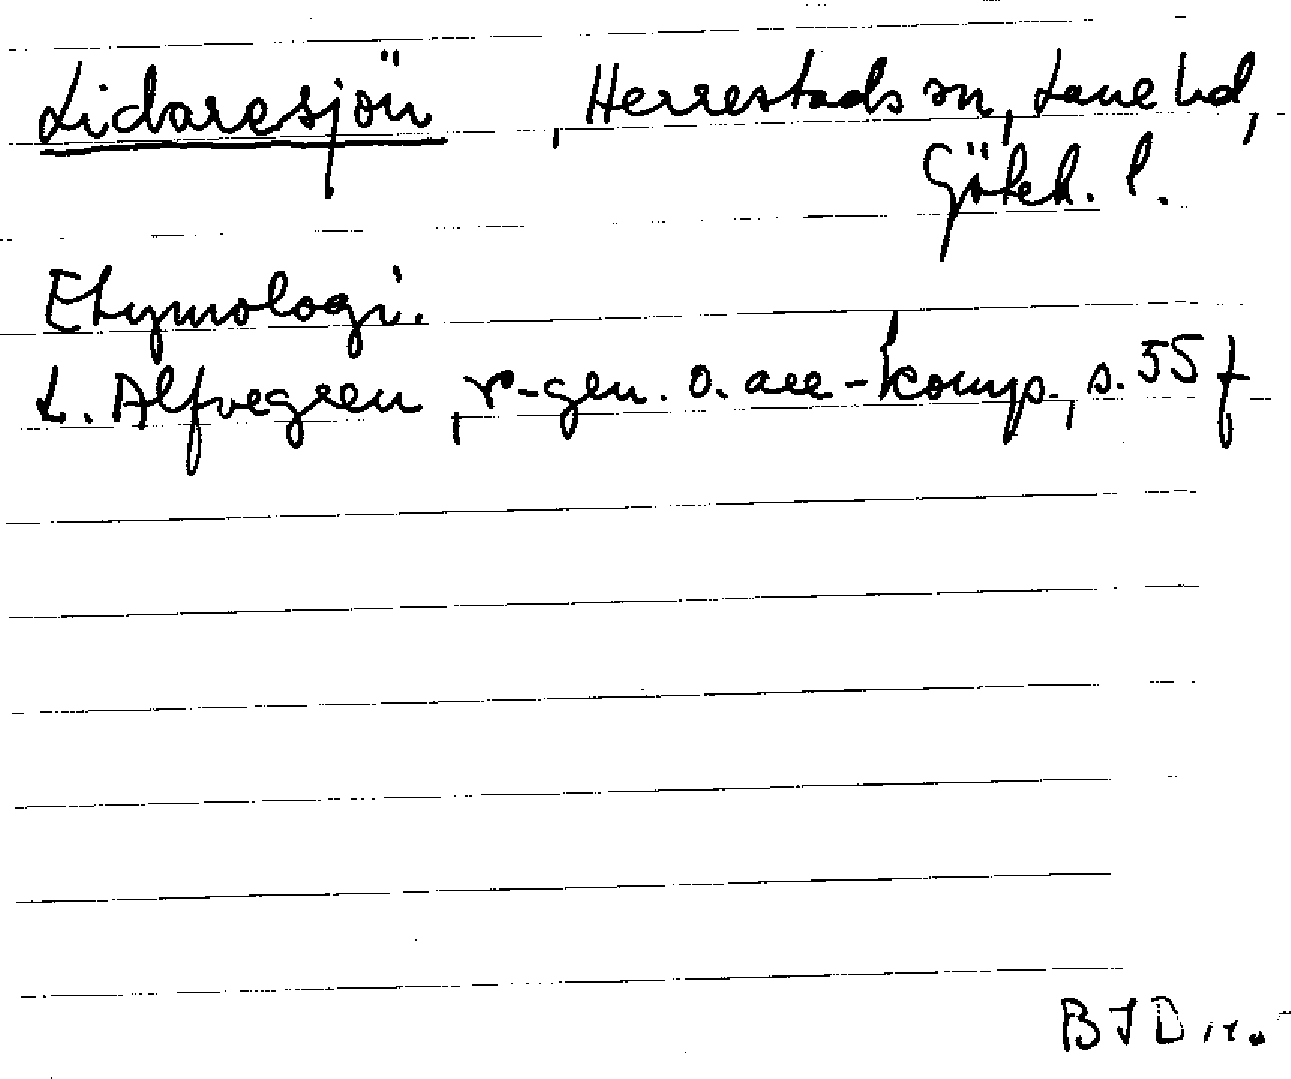 Lidaresjön , Herrestads sn, Lane hd,
Göteb. l.
Etymologi.
L. Alfvegren, r-gen. o. are-komp., s. 55 f